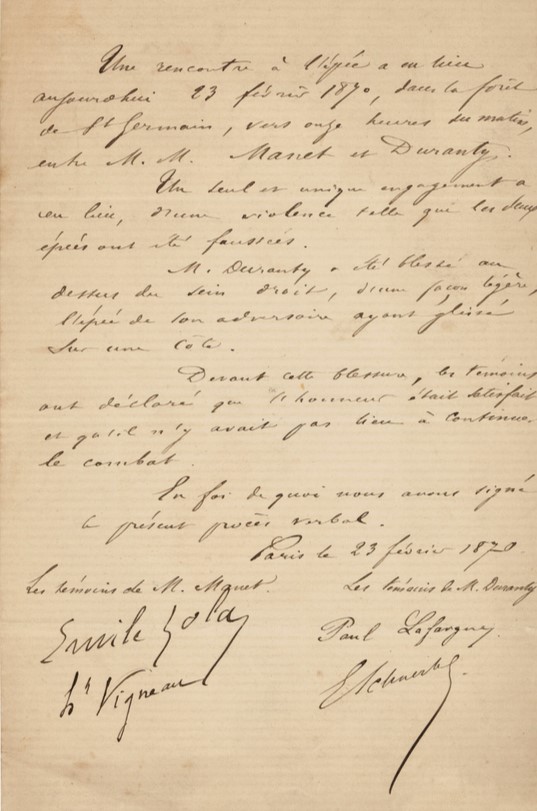 Une rencontre à l'épée a eu lieu
aujourd'hui 23 février 1870, dans la forêt
de St Germain, vers onze heures du matin,
entre M. M. Manet et Duranty.
Un seul et unique engagement a
eu lieu, d'une violence telle que les deux
épées ont été faussées.
M. Duranty a été blessé au
dessus du sein droit, d'une façon légère,
l'épée de son adversaire ayant glissé
sur une côte.
Devant cette blessure, les témoins
ont déclaré que l'honneur était satisfait
et qu'il n'y avait pas lieu à continuer
le combat.
En foi de quoi nous avons signé
le présent procès verbal.
Paris le 23 février 1870.
Les témoins de M. Manet. Les témoins de M. Duranty
Emile Zola Paul Lafargue
hri Vigneau